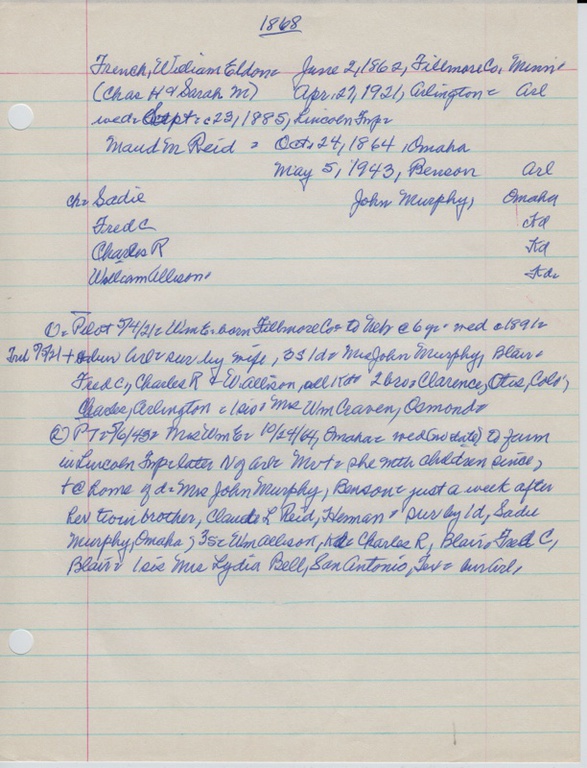 1868
French, William Eldon = June 2, 1862, Fillmore Co, Minn =
(Chas H & Sarah M) Apr. 27, 1921, Arlington = Arl
wed = Sept. c23, 1885, Lincoln Twp =
Maud M Reid = Oct. 24, 1864, Omaha
May 5, 1943, Benson Arl
ch = Sadie John Murphy, Omaha
Fred C Kd
Charles R Kd
William Allison = Kd =
① = Pilot 5/4/21 = Wm E = born Fillmore Co = to Neb c 6 yr = wed c 1891 =
Trib 5/5/21 + bur Arl = sur by wife, 3S 1d = Mrs John Murphy, Blair =
Fred C, Charles R & W. Allison, all K = 2 bro = Clarence, Otis, Colo;
Charles, Arlington = 1 sis = Mrs Wm Craven, Osmond =
② PT = 5/6/43 = Mrs Wm E = 10/24/64, Omaha = wed (no date) to farm
in Lincoln Twp = later N of Arl = Mr + = she with children since,
+ @ home of d = Mrs John Murphy, Benson = just a week after
her twin brother, Claude L Reid, Herman = sur by 1d, Sadie
Murphy, Omaha; 3S = Wm Allison, Kd = Charles R, Blair = Fred C,
Blair = 1 sis Mrs Lydia Bell, San Antonio, Tex = bur Arl,